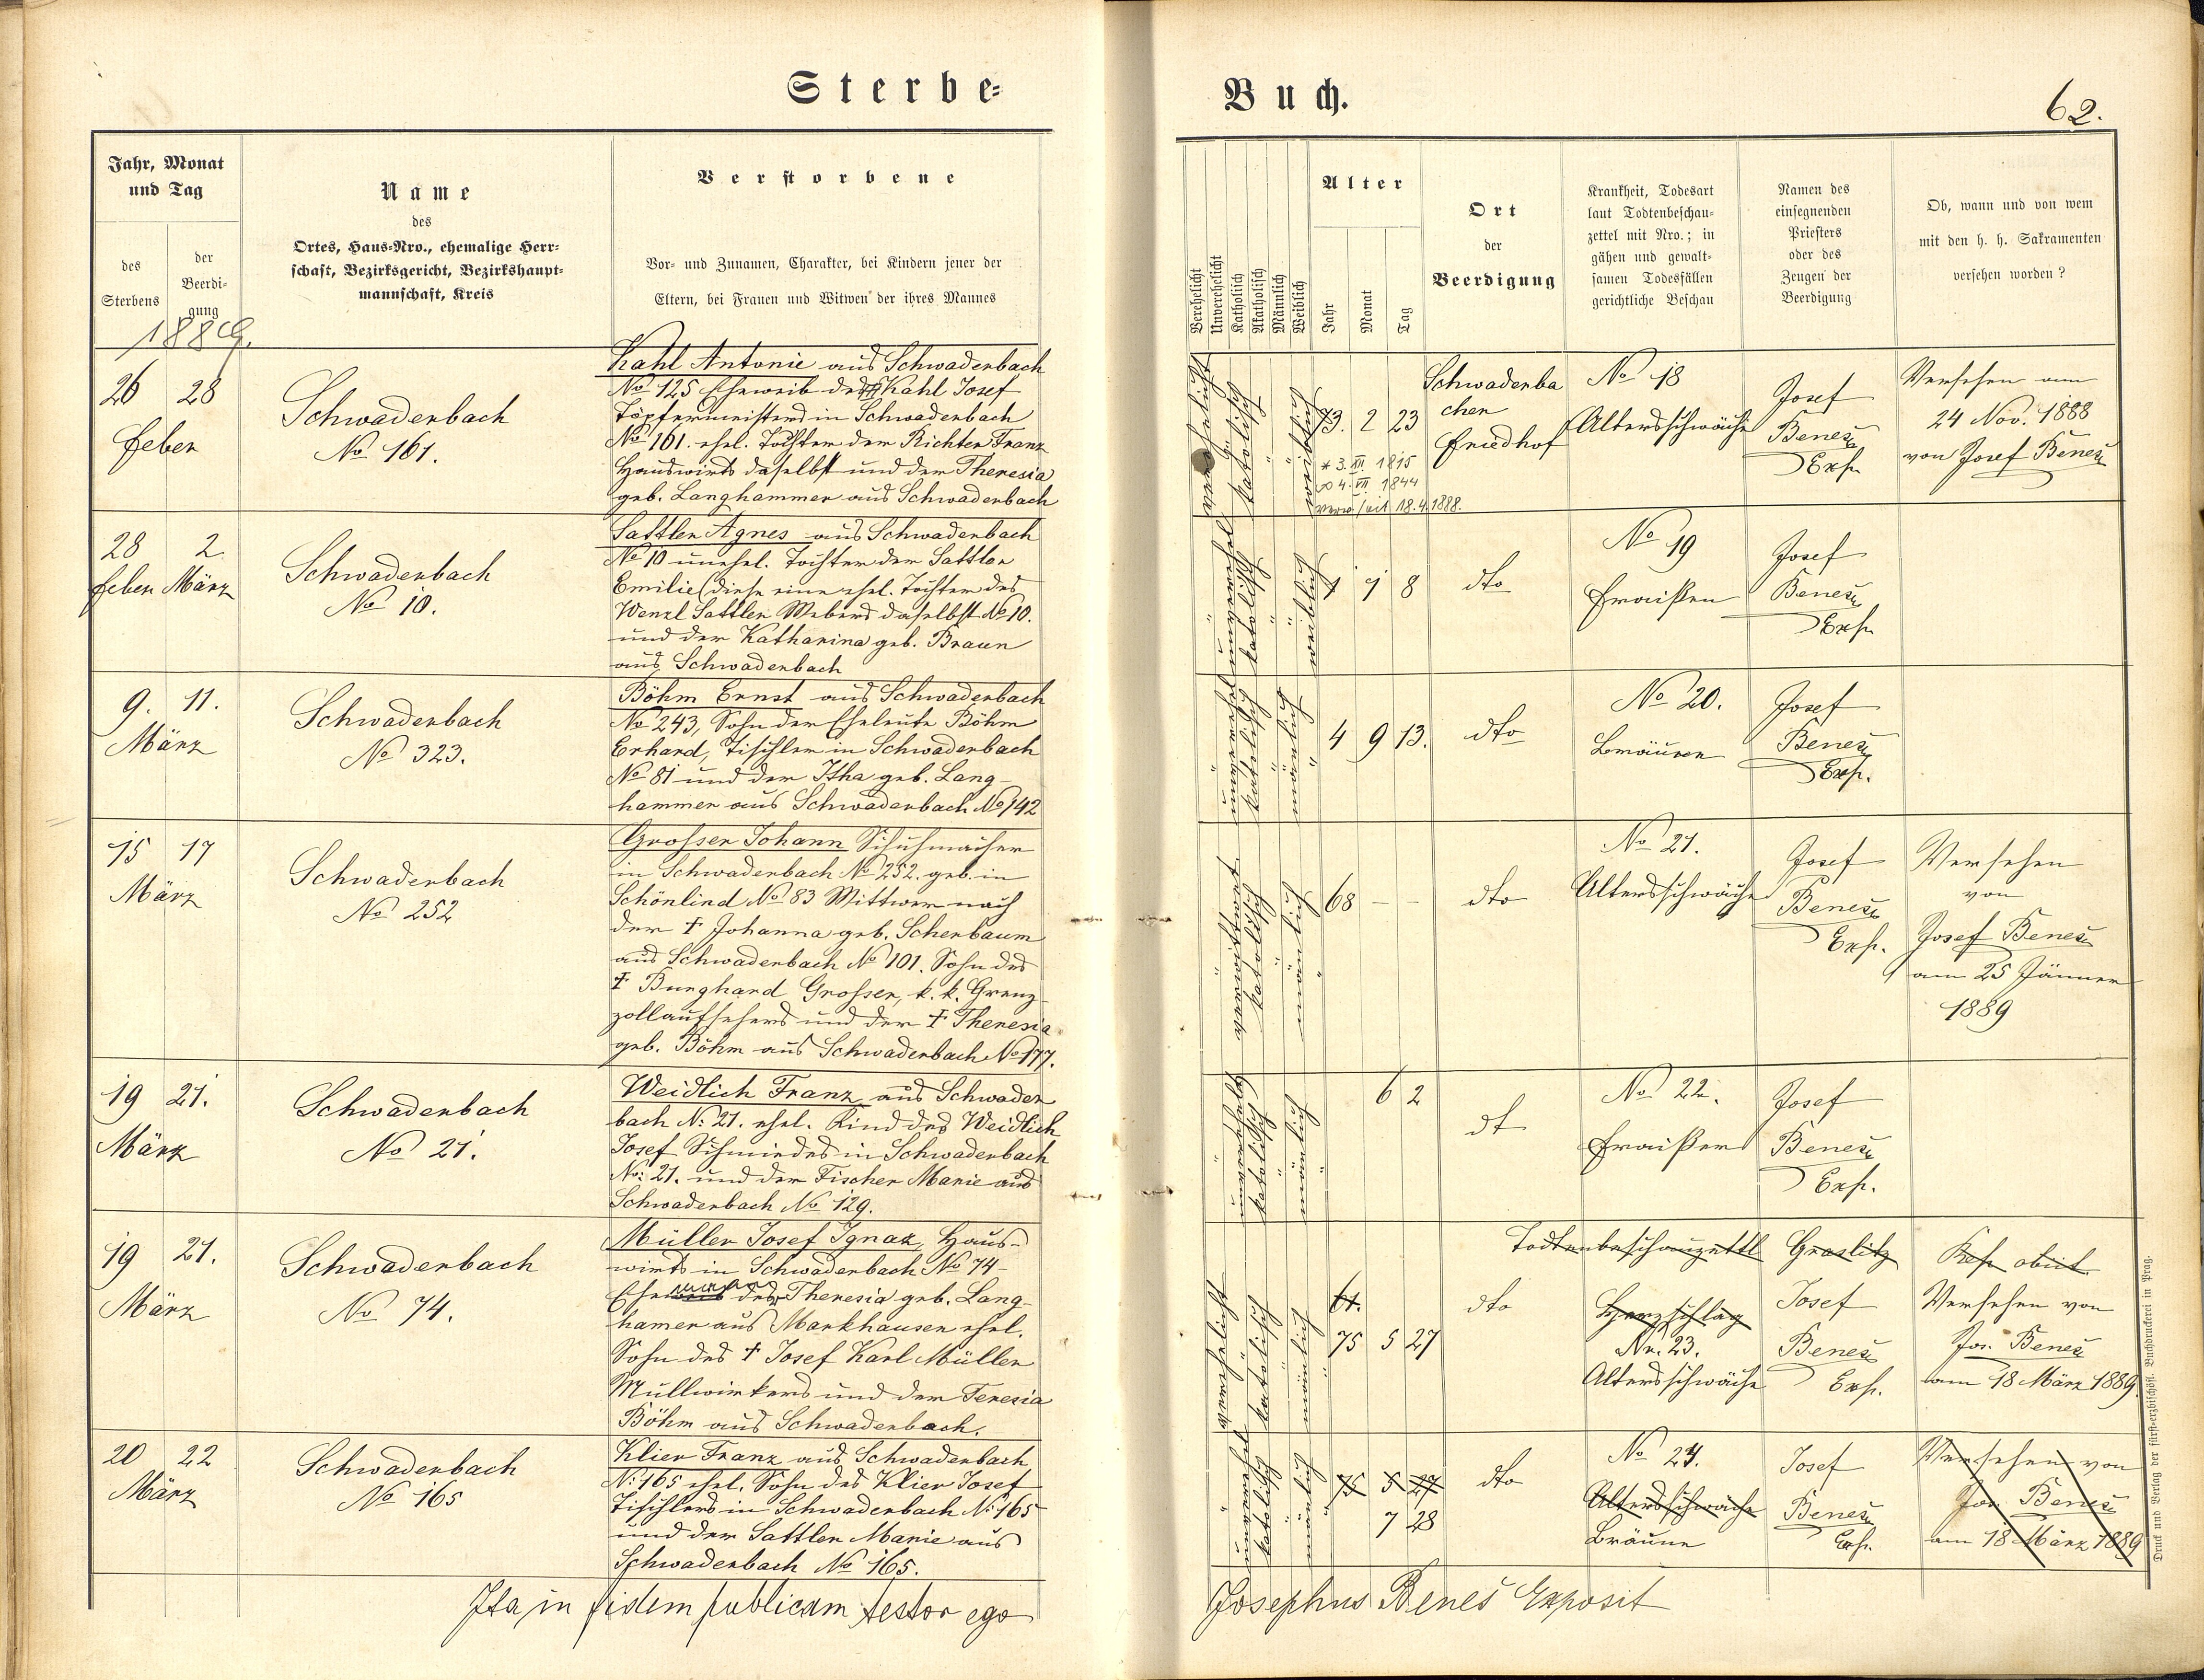 Sterbe-
Jahr, Monat
und Tag
des
Sterbens
der
Beerdi-
gung
Name
des
Ortes, Haus-Nro., ehemalige Herr-
schaft, Bezirksgericht, Bezirkshaupt-
mannschaft, Kreis
Verstorbene
Vor- und Zunamen, Charakter, bei Kindern jener der
Eltern, bei Frauen und Witwen der ihres Mannes
1889.
26 28
Feber
Schwaderbach
No 161.
Kahl Antonie aus Schwaderbach
No 125 Eheweib des Kahl Josef
Töpfermeisters in Schwaderbach
No 161. ehel. Tochter der Richter Franz
Hauswirts daselbst und der Theresia
geb. Langhammer aus Schwaderbach
28 2.
Feber März
Schwaderbach
No 10.
Sattler Agnes aus Schwaderbach
No 10 unehel. Tochter der Sattler
Emilie (diese eine ehel. Tochter des
Wenzl Sattler Webers daselbst No 10.
und der Katharina geb. Braun
aus Schwaderbach
9. 11.
März
Schwaderbach
No 323.
Böhm Ernst aus Schwaderbach
No 243, Sohn der Eheleute Böhm
Erhard, Tischler in Schwaderbach
No 81 und der Itha geb. Lang-
hammer aus Schwaderbach No 142
15 17
März
Schwaderbach
No 252
Grosser Johann Schuhmacher
in Schwaderbach No 252. geb. in
Schönlind No 83 Wittwer nach
der † Johanna geb. Scherbaum
aus Schwaderbach No 101. Sohn des
† Burghard Grosser, k. k. Grenz-
zollaufsehers und der † Theresia
geb. Böhm aus Schwaderbach No 177.
19 21.
März
Schwaderbach
No 21.
Weidlich Franz aus Schwader
bach N: 21. ehel. Kind des Weidlich
Josef Schmiedes in Schwaderbach
No: 21. und der Fischer Marie aus
Schwaderbach No 129.
19 21.
März
Schwaderbach
No 74.
Müller Josef Ignaz, Haus-
wirts in Schwaderbach No 74
Ehemann der Theresia geb. Lang-
hamer aus Markhausen ehel.
Sohn des † Josef Karl Müller
Müllwirkers und der Teresia
Böhm aus Schwaderbach.
20 22
März
Schwaderbach
No 165
Klier Franz aus Schwaderbach
N: 165 ehel. Sohn des Klier Josef
Tischlers in Schwaderbach N: 165
und der Sattler Marie aus
Schwaderbach No 165.
Ita in fidem publicam testor ego
Buch.
62.
Verehelicht
Unverehelicht
Katholisch
Akatholisch
Männlich
Weiblich
Alter
Jahr
Monat
Tag
Ort
der
Beerdigung
Krankheit, Todesart
laut Todtenbeschau-
zettel mit Nro.; in
gähen und gewalt-
samen Todesfällen
gerichtliche Beschau
Namen des
einsegnenden
Priesters
oder des
Zeugen der
Beerdigung
Ob, wann und von wem
mit den h. h. Sakramenten
versehen worden?
verehelicht
katolisch
weiblich
73. 2 23
* 3. XII. 1815
∞ 4. VII. 1844
verw. seit 18.4.1888.
Schwaderba
cher
Friedhof
No 18
Altersschwäche
Josef
Beneš
Exp.
Versehen am
24 Nov. 1888
von Josef Beneš
unverehel
katolisch
weiblich
1 1 8
dto
No 19
Fraißen
Josef
Beneš
Exp.
unverehel
katolisch
mänlich
4 9 13.
dto
No 20.
Bräuren
Josef
Beneš
Exp.
verwittwet
katolisch
mänlich
68 – –
dto
No 21.
Altersschwäche
Josef
Beneš
Exp.
Versehen
von
Josef Beneš
am 25 Jänner
1889
unverehel
katolisch
mänlich
6 2
dt
No 22.
Fraißen
Josef
Beneš
Exp.
verehelicht
katolisch
mänlich
61.
75 5 27
dto
Todtenbeschauzettl Graslitz
Herzschlag
Nr. 23.
Altersschwäche
Josef
Beneš
Exp.
Rep. obiit.
Versehen von
Jos. Beneš
am 18 März 1889
unverehel
katolisch
mänlich
75 5 27
7 28
dto
No 24.
Altersschwäche
Bräune
Josef
Beneš
Exp.
Versehen von
Jos. Beneš
am 18 März 1889
Josephus Beneš Exposit
Druck und Verlag der fürst-erzbischöfl. Buchdruckerei in Prag.